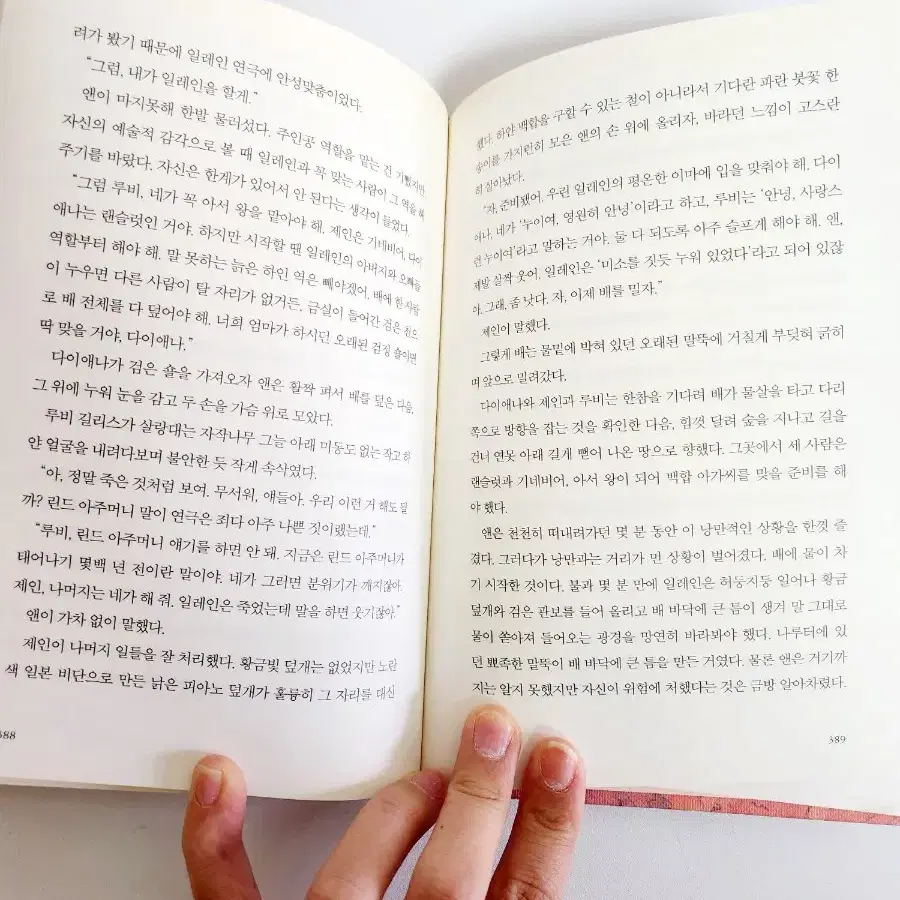 려가 봤기 때문에 일레인 연극에 안성맞춤이었다.
“그럼, 내가 일레인을 할게.”
앤이 마지못해 한발 물러섰다. 주인공 역할을 맡는 건 기뻤지만
자신의 예술적 감각으로 볼 때 일레인과 꼭 맞는 사람이 그 역을 해
주기를 바랐다. 자신은 한계가 있어서 안 된다는 생각이 들었다.
“그럼 루비, 네가 꼭 아서 왕을 맡아야 해. 제인은 기네비어, 다이
애나는 랜슬럿인 거야. 하지만 시작할 땐 일레인의 아버지와 오빠들
역할부터 해야 해. 말 못하는 늙은 하인 역은 빼야겠어. 배에 한 사람
이 누우면 다른 사람이 탈 자리가 없거든. 금실이 들어간 검은 천으
로 배 전체를 다 덮어야 해. 너희 엄마가 하시던 오래된 검정 숄이면
딱 맞을 거야, 다이애나.”
다이애나가 검은 숄을 가져오자 앤은 활짝 펴서 배를 덮은 다음,
그 위에 누워 눈을 감고 두 손을 가슴 위로 모았다.
루비 길리스가 살랑대는 자작나무 그늘 아래 미동도 없는 작고 하
얀 얼굴을 내려다보며 불안한 듯 작게 속삭였다.
“아, 정말 죽은 것처럼 보여. 무서워, 얘들아. 우리 이런 거 해도 될
까? 린드 아주머니 말이 연극은 죄다 아주 나쁜 짓이랬는데.”
“루비, 린드 아주머니 얘기를 하면 안 돼. 지금은 린드 아주머니가
태어나기 몇백 년 전이란 말이야. 네가 그러면 분위기가 깨지잖아.
제인, 나머지는 네가 해 줘. 일레인은 죽었는데 말을 하면 웃기잖아.”
앤이 가차 없이 말했다.
제인이 나머지 일들을 잘 처리했다. 황금빛 덮개는 없었지만 노란
색 일본 비단으로 만든 낡은 피아노 덮개가 훌륭히 그 자리를 대신
388
했다. 하얀 백합을 구할 수 있는 철이 아니라서 기다란 파란 붓꽃 한
송이를 가지런히 모은 앤의 손 위에 올리자, 바라던 느낌이 고스란
히 살아났다.
“자, 준비됐어. 우린 일레인의 평온한 이마에 입을 맞춰야 해. 다이
애나, 네가 ‘누이여, 영원히 안녕’이라고 하고, 루비는 ‘안녕, 사랑스
런 누이여’라고 말하는 거야. 둘 다 되도록 아주 슬프게 해야 해. 앤,
제발 살짝 웃어. 일레인은 ‘미소를 짓듯 누워 있었다’라고 되어 있잖
아. 그래, 좀 낫다. 자, 이제 배를 밀자.”
제인이 말했다.
그렇게 배는 물밑에 박혀 있던 오래된 말뚝에 거칠게 부딪혀 긁히
며 앞으로 밀려갔다.
다이애나와 제인과 루비는 한참을 기다려 배가 물살을 타고 다리
쪽으로 방향을 잡는 것을 확인한 다음, 힘껏 달려 숲을 지나고 길을
건너 연못 아래 길게 뻗어 나온 땅으로 향했다. 그곳에서 세 사람은
랜슬럿과 기네비어, 아서 왕이 되어 백합 아가씨를 맞을 준비를 해
야 했다.
앤은 천천히 떠내려가던 몇 분 동안 이 낭만적인 상황을 한껏 즐
겼다. 그러다가 낭만과는 거리가 먼 상황이 벌어졌다. 배에 물이 차
기 시작한 것이다. 불과 몇 분 만에 일레인은 허둥지둥 일어나 황금
덮개와 검은 관보를 들어 올리고 배 바닥에 큰 틈이 생겨 말 그대로
물이 쏟아져 들어오는 광경을 망연히 바라봐야 했다. 나루터에 있
던 뾰족한 말뚝이 배 바닥에 큰 틈을 만든 거였다. 물론 앤은 거기까
지는 알지 못했지만 자신이 위험에 처했다는 것은 금방 알아차렸다.
389